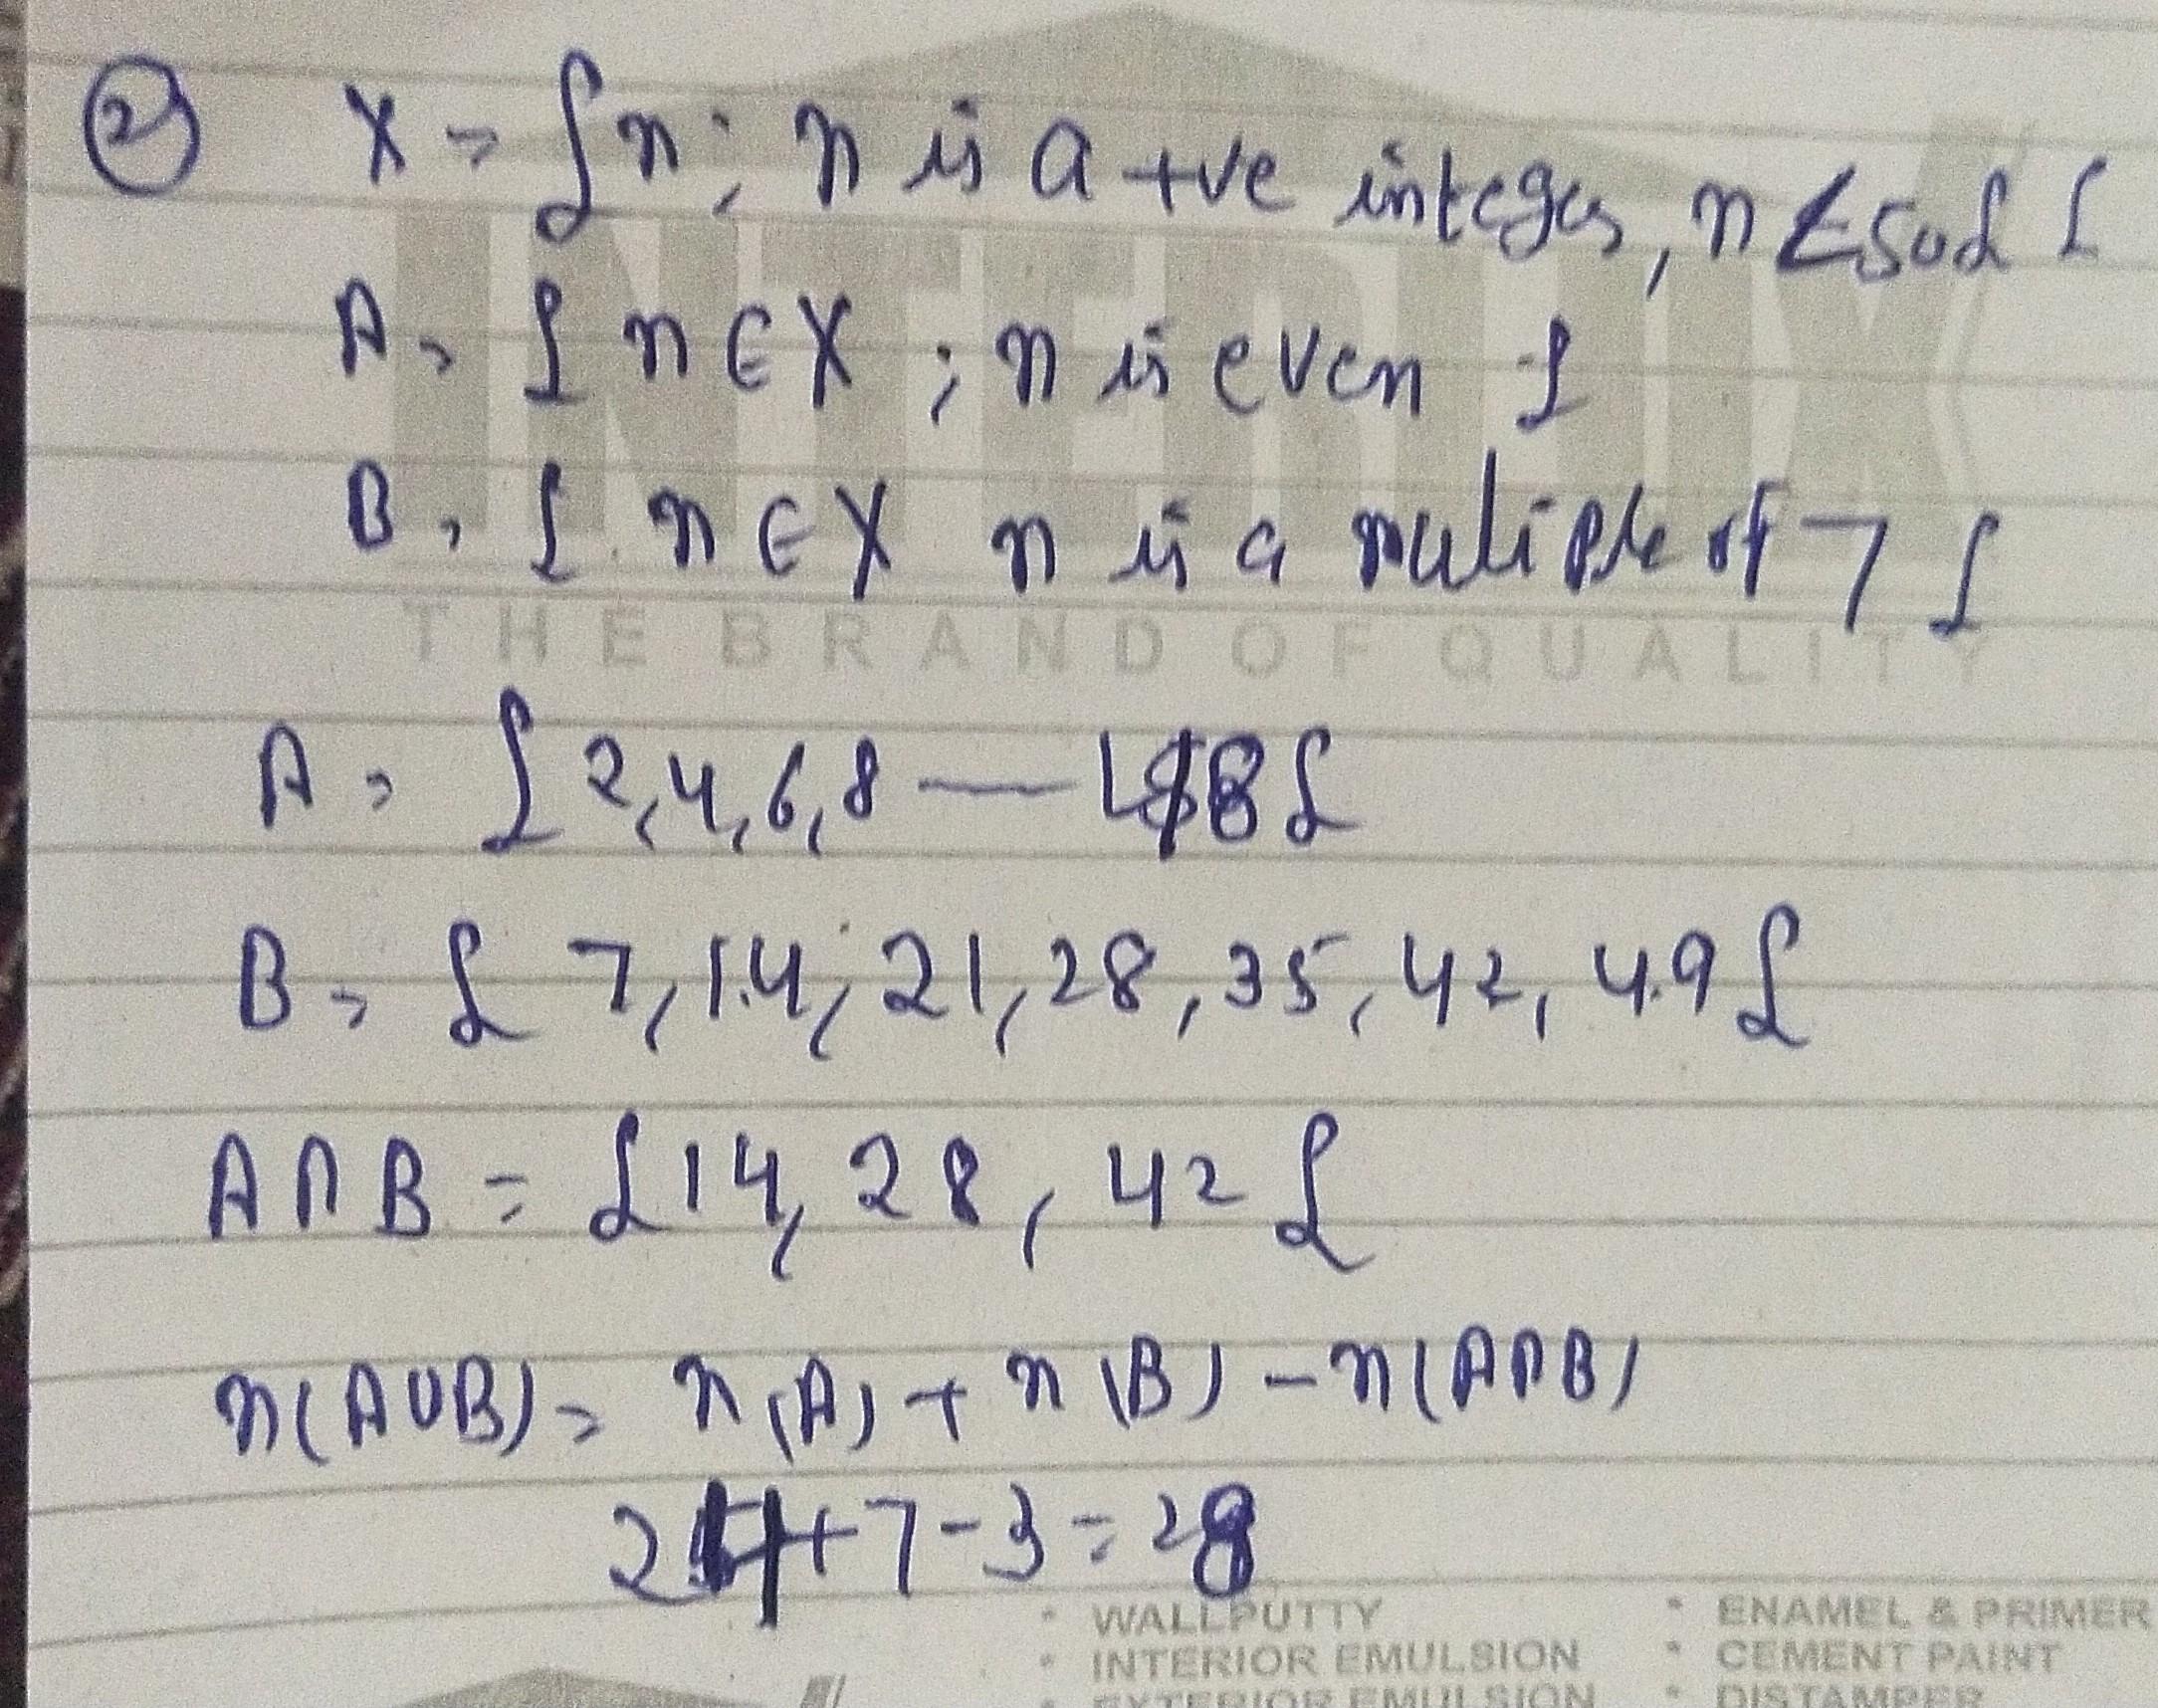 ② X = {n; n is a +ve integer, n < 50 }
A = { n ∈ X ; n is even }
B = { n ∈ X n is a muliple of 7 }
THE BRAND OF QUALITY
A = { 2, 4, 6, 8 — 48 }
B = { 7, 14, 21, 28, 35, 42, 49 }
A ∩ B = { 14, 28, 42 }
n(A∪B) = n(A) + n(B) - n(A∩B)
24 + 7 - 3 = 28
• WALLPUTTY • ENAMEL & PRIMER
• INTERIOR EMULSION • CEMENT PAINT
• EXTERIOR EMULSION • DISTAMPER